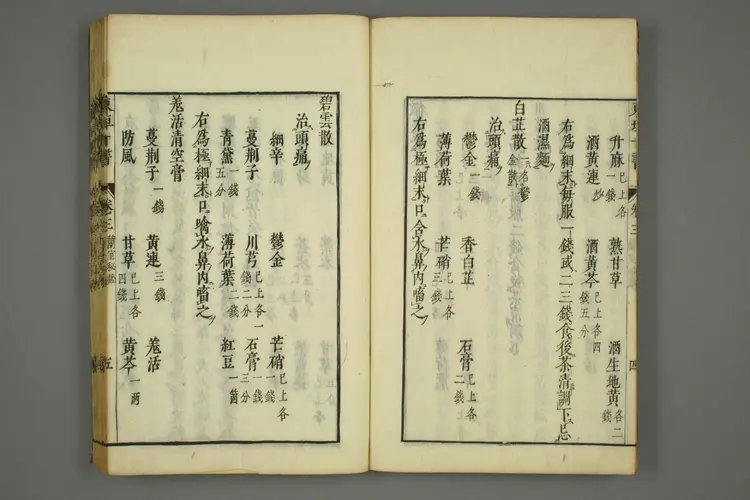 升麻 熟甘草 酒生地黃
已上各一錢 各二
酒黃連炒 酒黃芩
已上各四錢五分
右爲細末每服一錢或二三錢食後茶清調下忌
酒濕麵
白芷散 一名鬱金散
治頭痛
鬱金一錢 香白芷 石膏已上各二錢
薄荷葉 芒硝已上各三錢
右爲極細末口含水鼻內㗜之
四
碧雲散
治頭痛
細辛 鬱金 芒硝已上各一錢
蔓荆子 川芎已上各一錢二分 石膏一錢三分
青黛一錢五分 薄荷葉二錢 紅豆一箇
右爲極細末口噙水鼻內㗜之
羗活清空膏
蔓荆子一錢 黃連三錢 羗活
防風 甘草已上各四錢 黃芩一兩
東垣十書 卷三 蘭室秘藏 五